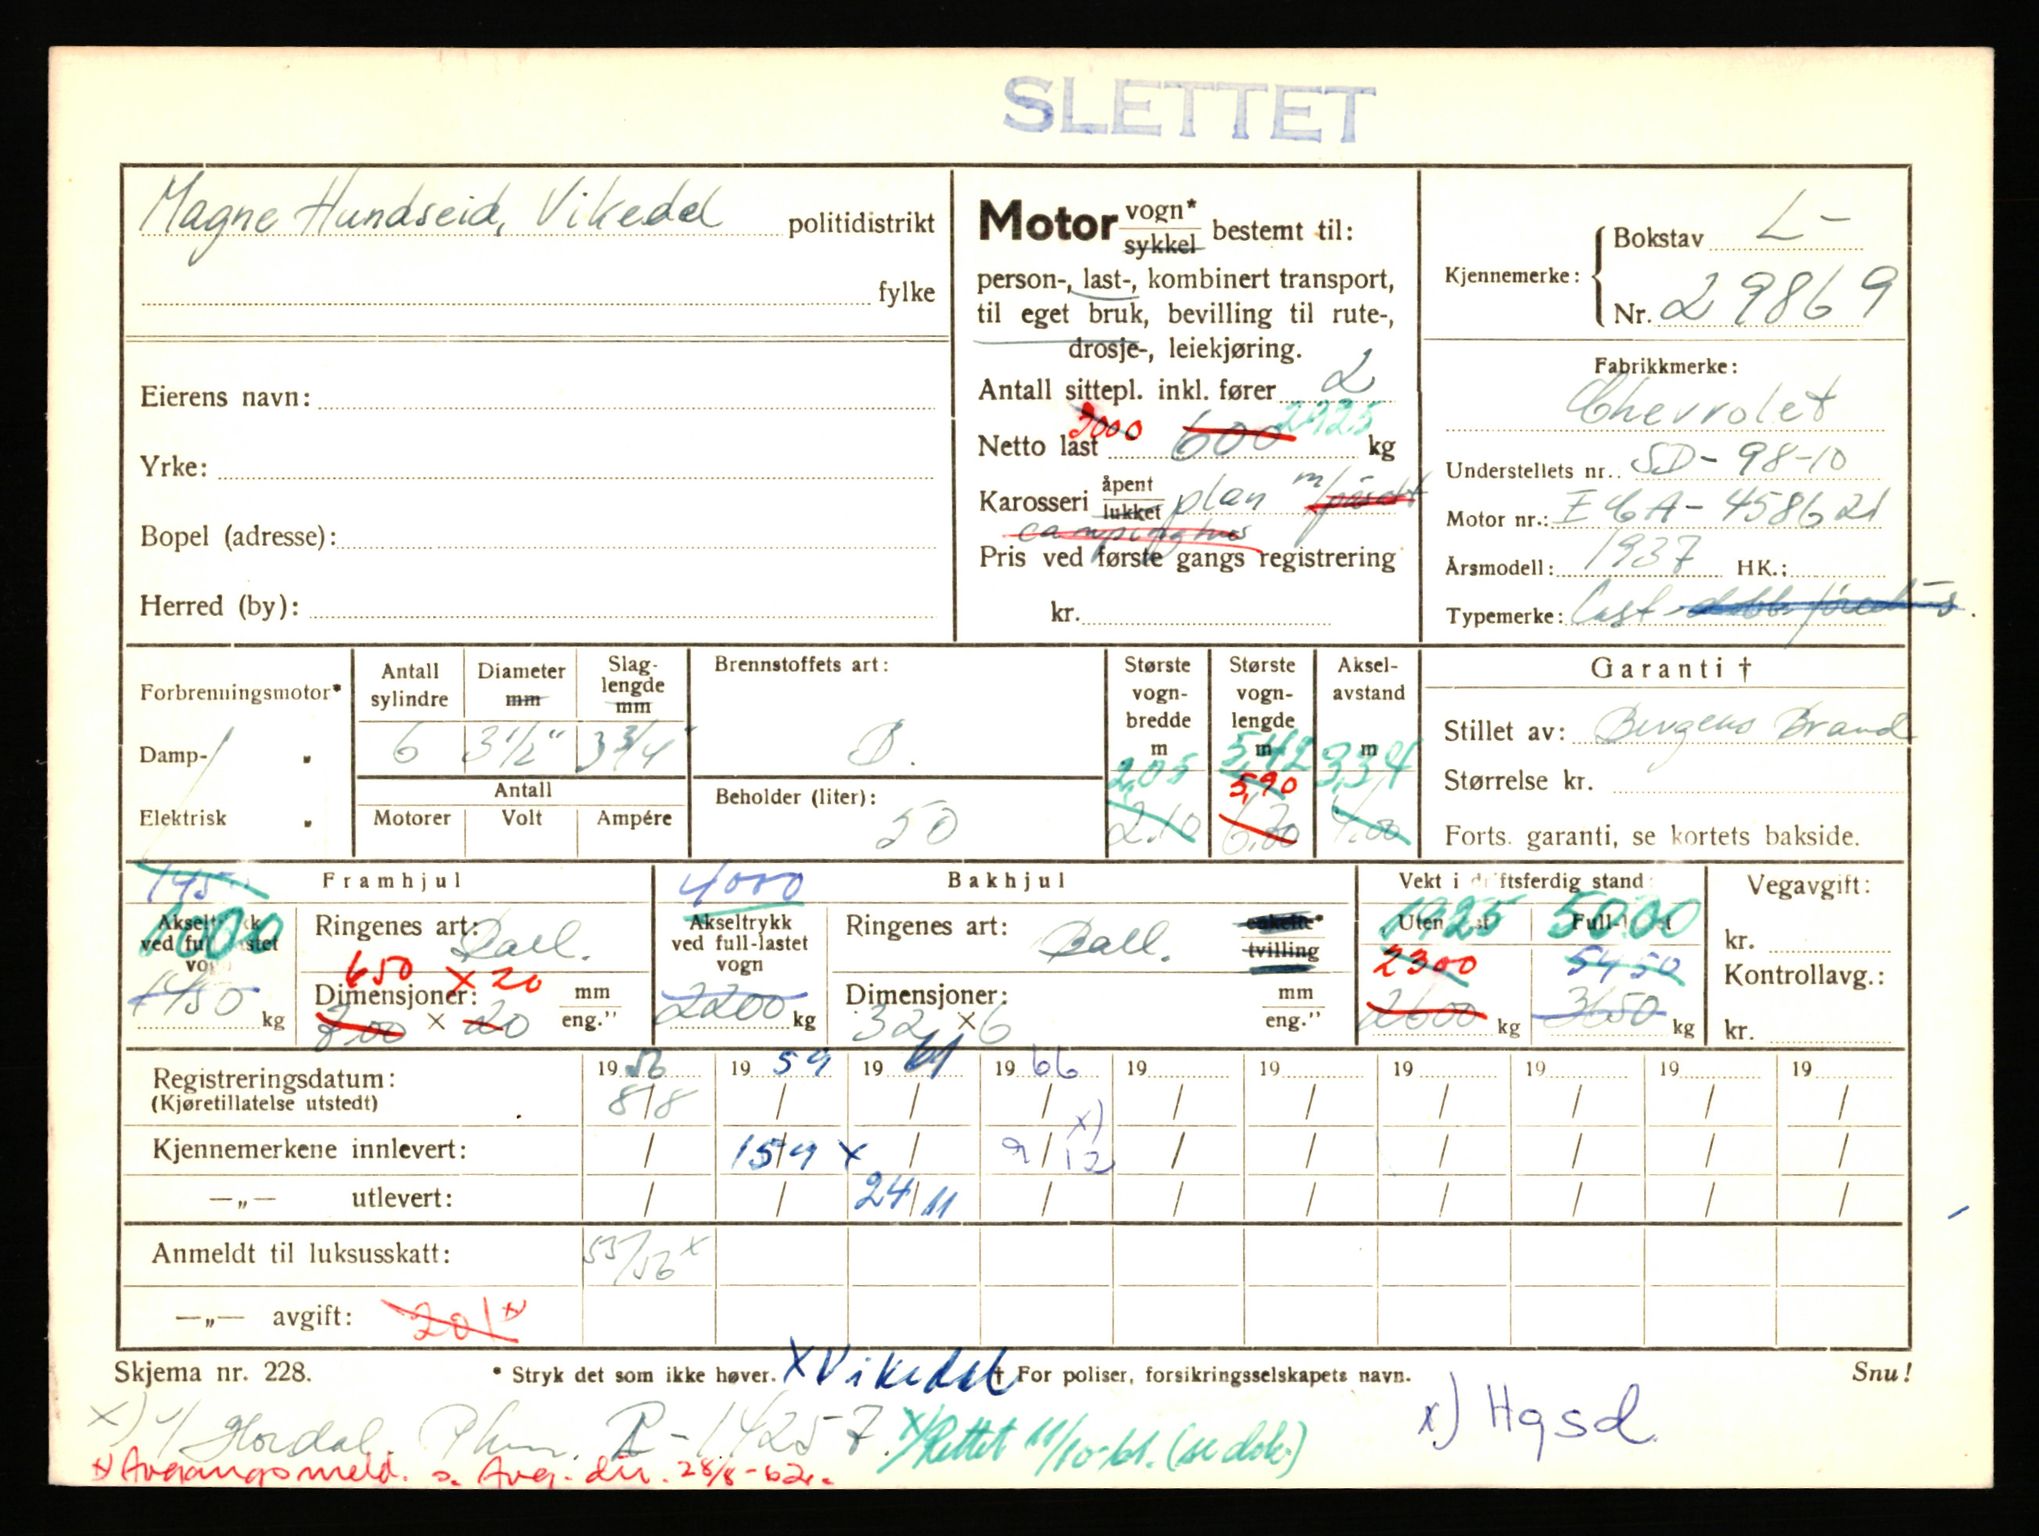 SLETTET
Magne Hundseid, Vikedal politidistrikt
fylke
Eierens navn:
Yrke:
Bopel (adresse):
Herred (by):
Motor vogn* sykkel bestemt til:
person-, last-, kombinert transport,
til eget bruk, bevilling til rute-,
drosje-, leiekjøring.
Antall sittepl. inkl. fører 2
Netto last 3000 600 2925 kg
Karosseri åpent lukket plan m/
campinghus
Pris ved første gangs registrering
kr.
Kjennemerke: Bokstav L-
Nr. 29869
Fabrikkmerke:
Chevrolet
Understellets nr. SD-98-10
Motor nr.: 458621
Årsmodell: 1937 HK.:
Typemerke: Last
Forbrenningsmotor*
Damp- "
Elektrisk "
Antall sylindre 6
Diameter mm 3 1/2"
Slaglengde mm 3 3/4"
Antall
Motorer Volt Ampére
Brennstoffets art:
B.
Beholder (liter):
50
Største vognbredde m 2,05 2.10
Største vognlengde m 5,42 5,90 6.20
Akselavstand m 3,34 4.00
Garanti †
Stillet av: Bergens Brand
Størrelse kr.
Forts. garanti, se kortets bakside.
Framhjul
145
Akseltrykk ved full-lastet vogn 1000
1450 kg
Ringenes art: Ball.
650 x 20
Dimensjoner: mm eng."
× 20
Bakhjul
4000
Akseltrykk ved full-lastet vogn
2200 kg
Ringenes art: Ball. enkelte* tvilling
Dimensjoner: mm eng."
32 × 6
Vekt i driftsferdig stand:
Uten last 1925 2300 2600 kg
Full-lastet 5000 5450 3650 kg
Vegavgift:
kr.
Kontrollavg.:
kr.
Registreringsdatum: 1956 1959 1961 1966 19 19 19 19 19 19
(Kjøretillatelse utstedt) 8/8 / / / / / / / / /
Kjennemerkene innlevert: / 15/9 x / 9/12 x) / / / / / /
—„— utlevert: / / 24/11 / / / / / / /
Anmeldt til luksusskatt: 55/56 x
—„— avgift: 201 x)
Skjema nr. 228. * Stryk det som ikke høver. x Vikedal † For poliser, forsikringsselskapets navn. Snu!
x) Hordal R-14257. x) Rettet 11/10-61. (se dok.) x) Hgsd.
x) Avgangsmeld. s. Avg. dir. 28/8-62.